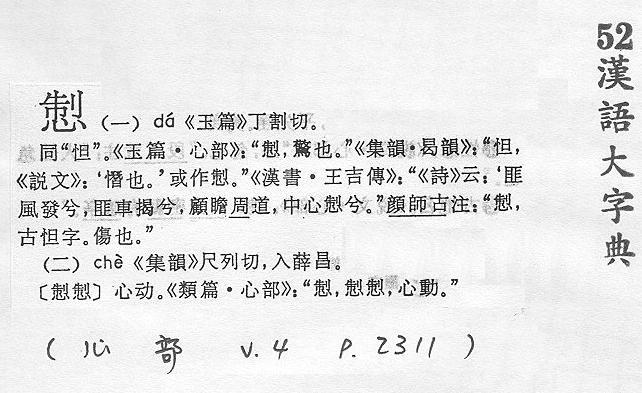 52 漢語大字典
(一) dá《玉篇》丁割切。
同“怛”。《玉篇·心部》:“,驚也。”《集韻·曷韻》:“怛,
《説文》:‘憯也。’或作。”《漢書·王吉傳》:“《詩》云:‘匪
風發兮,匪車揭兮,顧瞻周道,中心兮。”顔師古注:“,
古怛字。傷也。”
(二) chè《集韻》尺列切,入薛昌。
〔〕心动。《類篇·心部》:“,,心動。”
( 心 部 V.4 P.2311 )